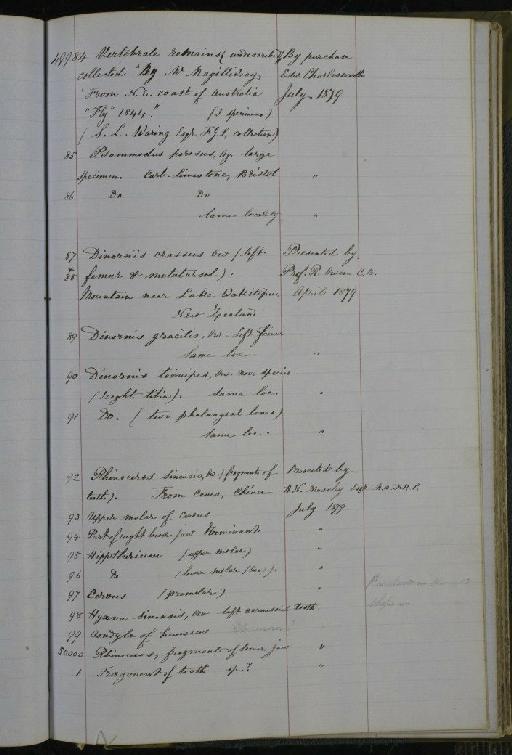 49984 Vertebrate remains By purchase
collected "By Mr Macgillivray, Edw. Charlesworth
From N.E. coast of Australia July, 1879
"Fly" 1844." (3 specimens)
(S. L. Waring Esqr. F.G.S, collection)
85 Psammodus porosus, Ag. large
specimen. Carb. Limestone, Bristol "
86 Do Do
Same locality "
87 Dinornis crassus Ow (left Presented by
88 femur & metatarsal). Prof. R. Owen C.B.
Mountains near Lake Wakatipu, April 1879
New Zealand
89 Dinornis gracilis, Ow. left femur
Same loc. "
90 Dinornis Ow. species
(right tibia). Same loc. "
91 Do. (two phalangeal bones)
Same loc. "
92 Rhinoceros sinensis, Ow (fragments of Presented by
tooth). From caves, China
93 Upper molar of Cervus July 1879
94 Part of right lower jaw Ruminant "
95 Hippotherium (upper molar) "
96 Do (lower molar) "
97 Cervus (premolar) "
98 Hyaena sinensis, Ow left tooth
99 Condyle of humerus
50000 Rhinoceros, fragments of lower jaw "
1 Fragment of tooth sp.? "